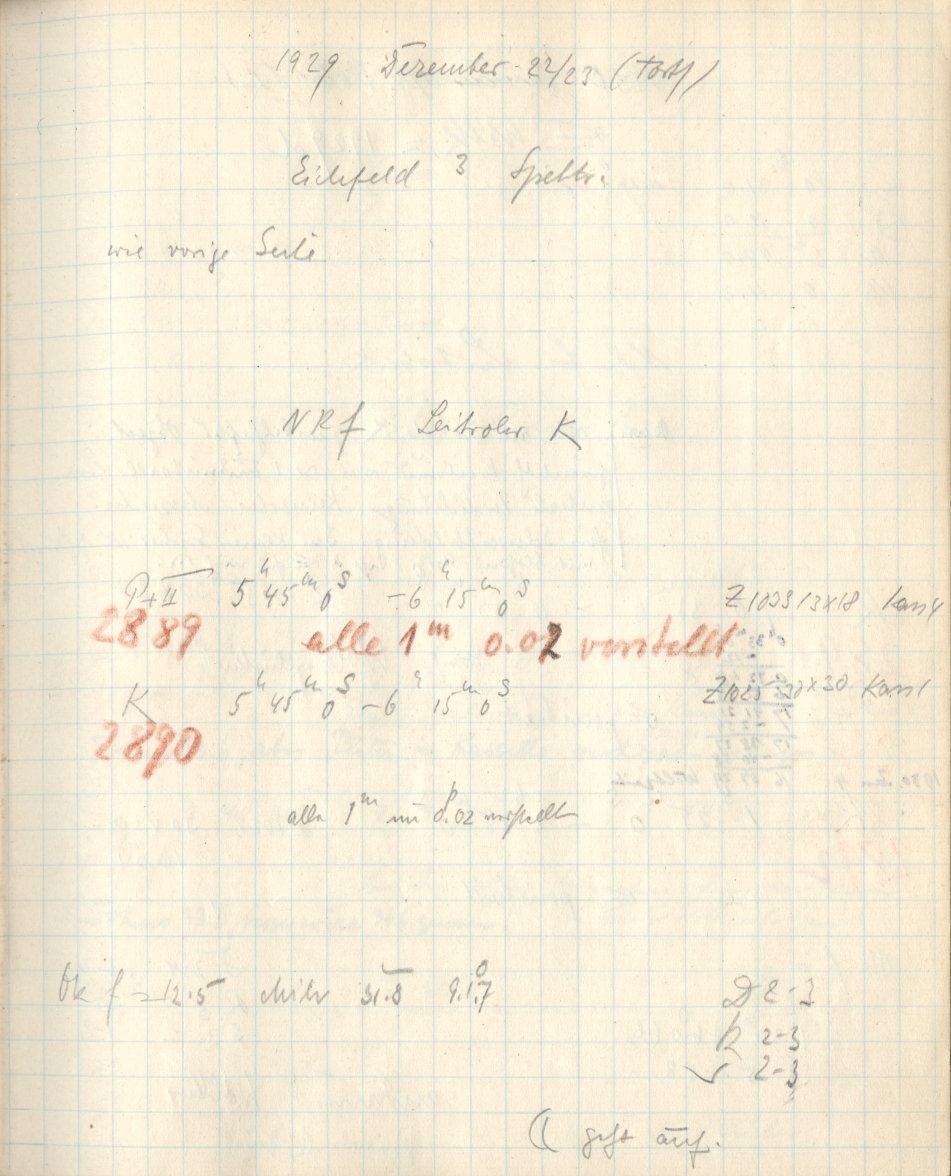 1929 Dezember 22/23 (Forts)
Eichfeld 3 Spektr.
wie vorige Seite
NRf K
P+II 5ʰ 45ᵐ 0ˢ -6ʰ 15ᵐ 0ˢ 13x18
2889 alle 1ᵐ 0.02 verstellt
K 5ʰ 45ᵐ 0ˢ -6ʰ 15ᵐ 0ˢ Z1025 30x30
2890
alle 1ᵐ um 0.02 verstellt
Ok f = 12.5 31.8
D 2-3
R 2-3
2-3
☾ geht auf.